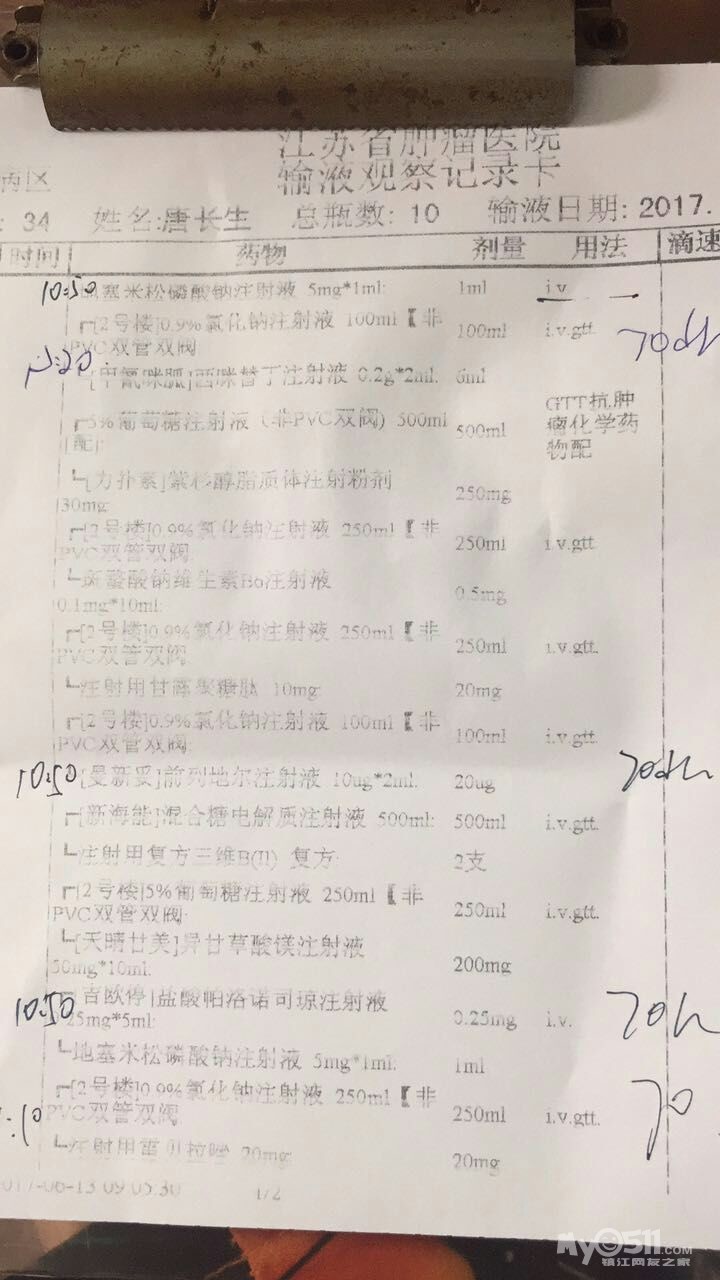 江苏省肿瘤医院
输液观察记录卡
病区
: 34 姓名:唐长生 总瓶数: 10 输液日期: 2017.
时间 药物 剂量 用法 滴速
10:50 地塞米松磷酸钠注射液 5mg*1ml: 1ml i.v.
┌[2号楼]0.9%氯化钠注射液 100ml【非 100ml i.v.gtt.
PVC双管双阀
└[甲氰咪胍]西咪替丁注射液 0.2g*2ml. 6ml
┌5%葡萄糖注射液（非PVC双阀) 500ml 500ml GTT抗肿
[配]: 瘤化学药
物配
└[力扑素]紫杉醇脂质体注射粉剂 250mg
30mg:
┌[2号楼]0.9%氯化钠注射液 250ml【非 250ml i.v.gtt.
PVC双管双阀
└斑蝥酸钠维生素B6注射液 0.5mg
0.1mg*10ml:
┌[2号楼]0.9%氯化钠注射液 250ml【非 250ml i.v.gtt.
PVC双管双阀
└注射用甘露聚糖肽 10mg: 20mg
┌[2号楼]0.9%氯化钠注射液 100ml【非 100ml i.v.gtt.
PVC双管双阀:
10:50 └[曼新妥]前列地尔注射液 10ug*2ml. 20ug
┌[新海能]混合糖电解质注射液 500ml: 500ml i.v.gtt.
└注射用复方三维B(II) 复方: 2支
┌[2号楼]5%葡萄糖注射液 250ml【非 250ml i.v.gtt.
PVC双管双阀:
└[天晴甘美]异甘草酸镁注射液 200mg
50mg*10ml:
10:50 [吉欧停]盐酸帕洛诺司琼注射液 0.25mg i.v. 70
25mg*5ml:
└地塞米松磷酸钠注射液 5mg*1ml: 1ml
┌[2号楼]0.9%氯化钠注射液 250ml【非 250ml i.v.gtt. 70
:10 PVC双管双阀
└注射用雷贝拉唑 20mg: 20mg
017-06-13 09:05:30 1/2
My0511.COM
镇江网友之家